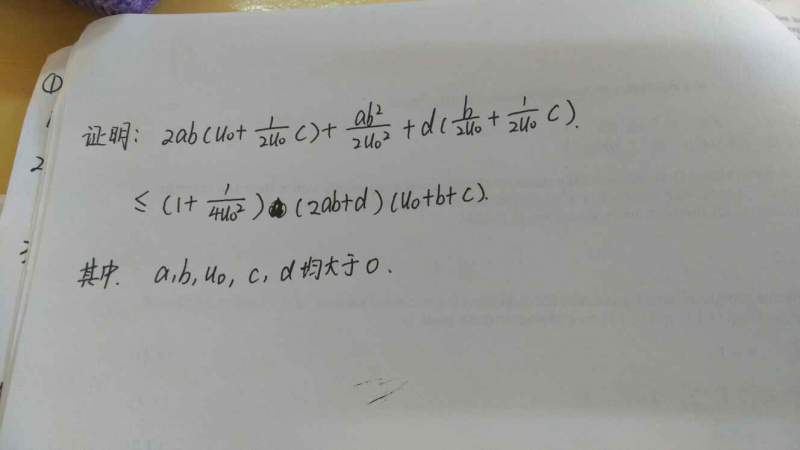 ①
2
证明: 2ab(u₀+\frac{1}{2u₀}c)+\frac{ab²}{2u₀²}+d(\frac{b}{2u₀}+\frac{1}{2u₀}c).
≤(1+\frac{1}{4u₀²})(2ab+d)(u₀+b+c).
其中. a,b,u₀, c, d均大于0.